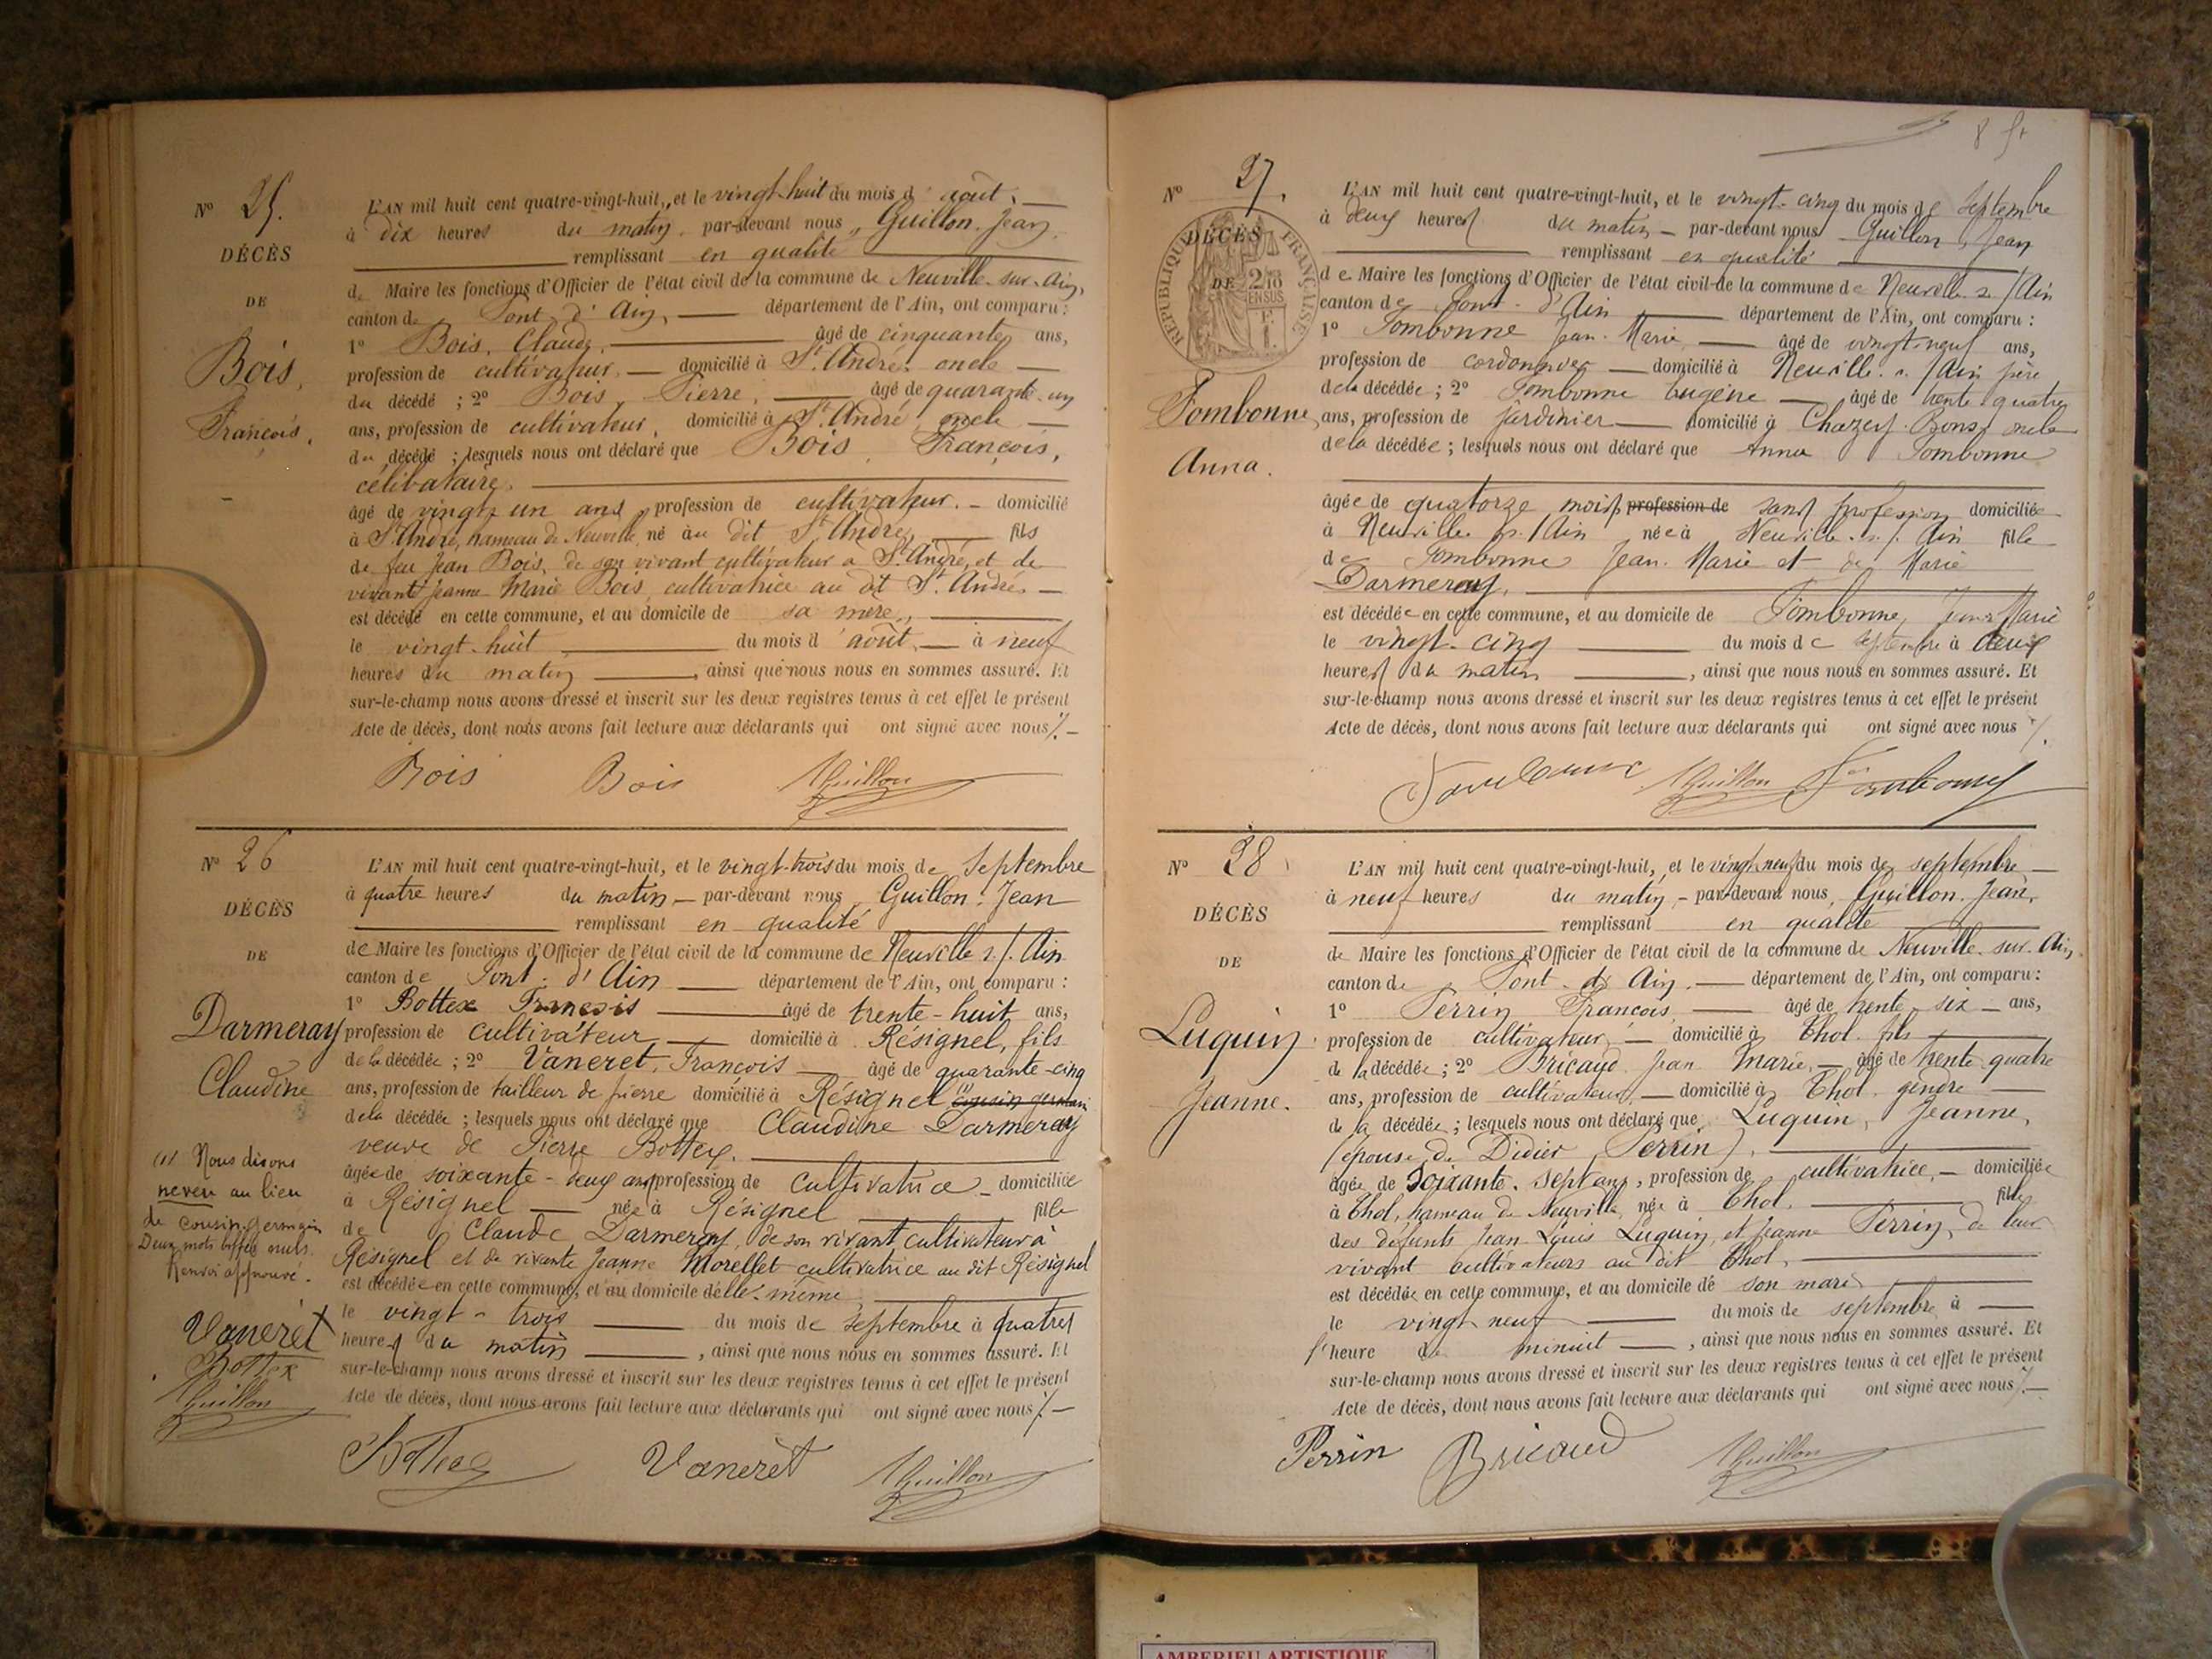 N° 25.
DÉCÈS
DE
Bois,
François,
L'AN mil huit cent quatre-vingt-huit, et le vingt-huit du mois d'août. —
à dix heures du matin, par-devant nous, Guillon, Jean,
remplissant en qualité
de Maire les fonctions d'Officier de l'état civil de la commune de Neuville-sur-Ain,
canton de Pont d'Ain, — département de l'Ain, ont comparu :
1° Bois, Claude, — âgé de cinquante ans,
profession de cultivateur, — domicilié à St. André, oncle —
du décédé ; 2° Bois, Pierre, — âgé de quarante-un
ans, profession de cultivateur, domicilié à St. André, oncle —
du décédé ; lesquels nous ont déclaré que Bois, François,
célibataire,
âgé de vingt un ans, profession de cultivateur. — domicilié
à St. André, hameau de Neuville, né au dit St. André, — fils
de feu Jean Bois, de son vivant cultivateur à St. André, et de
vivante Jeanne Marie Bois, cultivatrice au dit St. André, —
est décédé en cette commune, et au domicile de sa mère,
le vingt-huit — du mois d'août, — à neuf
heures du matin —, ainsi que nous nous en sommes assuré. Et
sur-le-champ nous avons dressé et inscrit sur les deux registres tenus à cet effet le présent
Acte de décès, dont nous avons fait lecture aux déclarants qui ont signé avec nous ./. —
Bois Bois Guillon
N° 26
DÉCÈS
DE
Darmeray
Claudine
(1) Nous disons
neveu au lieu
de cousin germain
Deux mots biffés nuls.
Renvoi approuvé.
Vaneret
Bottex
Guillon
L'AN mil huit cent quatre-vingt-huit, et le vingt-trois du mois de Septembre
à quatre heures du matin, — par-devant nous, Guillon, Jean
remplissant en qualité
de Maire les fonctions d'Officier de l'état civil de la commune de Neuville s./. Ain
canton de Pont-d'Ain — département de l'Ain, ont comparu :
1° Bottex François — âgé de trente-huit ans,
profession de cultivateur — domicilié à Résignel, fils
de la décédée ; 2° Vaneret, François — âgé de quarante-cinq
ans, profession de tailleur de pierre domicilié à Résignel (1) cousin germain
de la décédée ; lesquels nous ont déclaré que Claudine Darmeray
veuve de Pierre Bottex.
âgée de soixante-deux ans profession de cultivatrice — domiciliée
à Résignel — née à Résignel — fille
de Claude Darmeray, de son vivant cultivateur à
Résignel et de vivante Jeanne Morellet cultivatrice au dit Résignel
est décédée en cette commune, et au domicile d'elle-même,
le vingt-trois — du mois de septembre à quatre
heures du matin —, ainsi que nous nous en sommes assuré. Et
sur-le-champ nous avons dressé et inscrit sur les deux registres tenus à cet effet le présent
Acte de décès, dont nous avons fait lecture aux déclarants qui ont signé avec nous ./. —
Bottex Vaneret Guillon
N° 27.
DÉCÈS
DE
RÉPUBLIQUE FRANÇAISE
2/10 EN SUS
Fombonne
Anna.
L'AN mil huit cent quatre-vingt-huit, et le vingt-cinq du mois de septembre
à deux heures du matin — par-devant nous Guillon, Jean
remplissant en qualité
de Maire les fonctions d'Officier de l'état civil de la commune de Neuville s./Ain
canton de Pont-d'Ain — département de l'Ain, ont comparu :
1° Fombonne Jean-Marie — âgé de vingt-neuf ans,
profession de cordonnier — domicilié à Neuville s./Ain père
de la décédée ; 2° Fombonne Eugène — âgé de trente-quatre
ans, profession de jardinier — domicilié à Chazey-Bons, oncle
de la décédée ; lesquels nous ont déclaré que Anna Fombonne
âgée de quatorze mois, profession de sans profession domiciliée
à Neuville s./Ain née à Neuville s./. Ain fille
de Fombonne Jean-Marie et de Marie
Darmeray,
est décédée en cette commune, et au domicile de Fombonne, Jean Marie
le vingt-cinq — du mois de septembre à deux
heures du matin —, ainsi que nous nous en sommes assuré. Et
sur-le-champ nous avons dressé et inscrit sur les deux registres tenus à cet effet le présent
Acte de décès, dont nous avons fait lecture aux déclarants qui ont signé avec nous ./.
Fombonne Guillon Fombonne
N° 28
DÉCÈS
DE
Luquin,
Jeanne.
L'AN mil huit cent quatre-vingt-huit, et le vingt-neuf du mois de septembre —
à neuf heures du matin, — par-devant nous, Guillon, Jean,
remplissant en qualité
de Maire les fonctions d'Officier de l'état civil de la commune de Neuville-sur-Ain,
canton de Pont-d'Ain. — département de l'Ain, ont comparu :
1° Perrin François, — âgé de trente-six — ans,
profession de cultivateur, — domicilié à Thol, fils
de la décédée ; 2° Bricaud Jean Marie, — âgé de trente-quatre
ans, profession de cultivateur, — domicilié à Thol, gendre —
de la décédée ; lesquels nous ont déclaré que Luquin, Jeanne,
(épouse de Didier Perrin),
âgée de soixante-sept ans, profession de cultivatrice, — domiciliée
à Thol, hameau de Neuville, née à Thol, — fille
des défunts Jean Louis Luquin, et Jeanne Perrin, de leur
vivant cultivateurs au dit Thol,
est décédée en cette commune, et au domicile de son mari
le vingt neuf — du mois de septembre à —
l'heure de minuit —, ainsi que nous nous en sommes assuré. Et
sur-le-champ nous avons dressé et inscrit sur les deux registres tenus à cet effet le présent
Acte de décès, dont nous avons fait lecture aux déclarants qui ont signé avec nous ./. —
Perrin Bricaud Guillon
AMBERIEU ARTISTIQUE